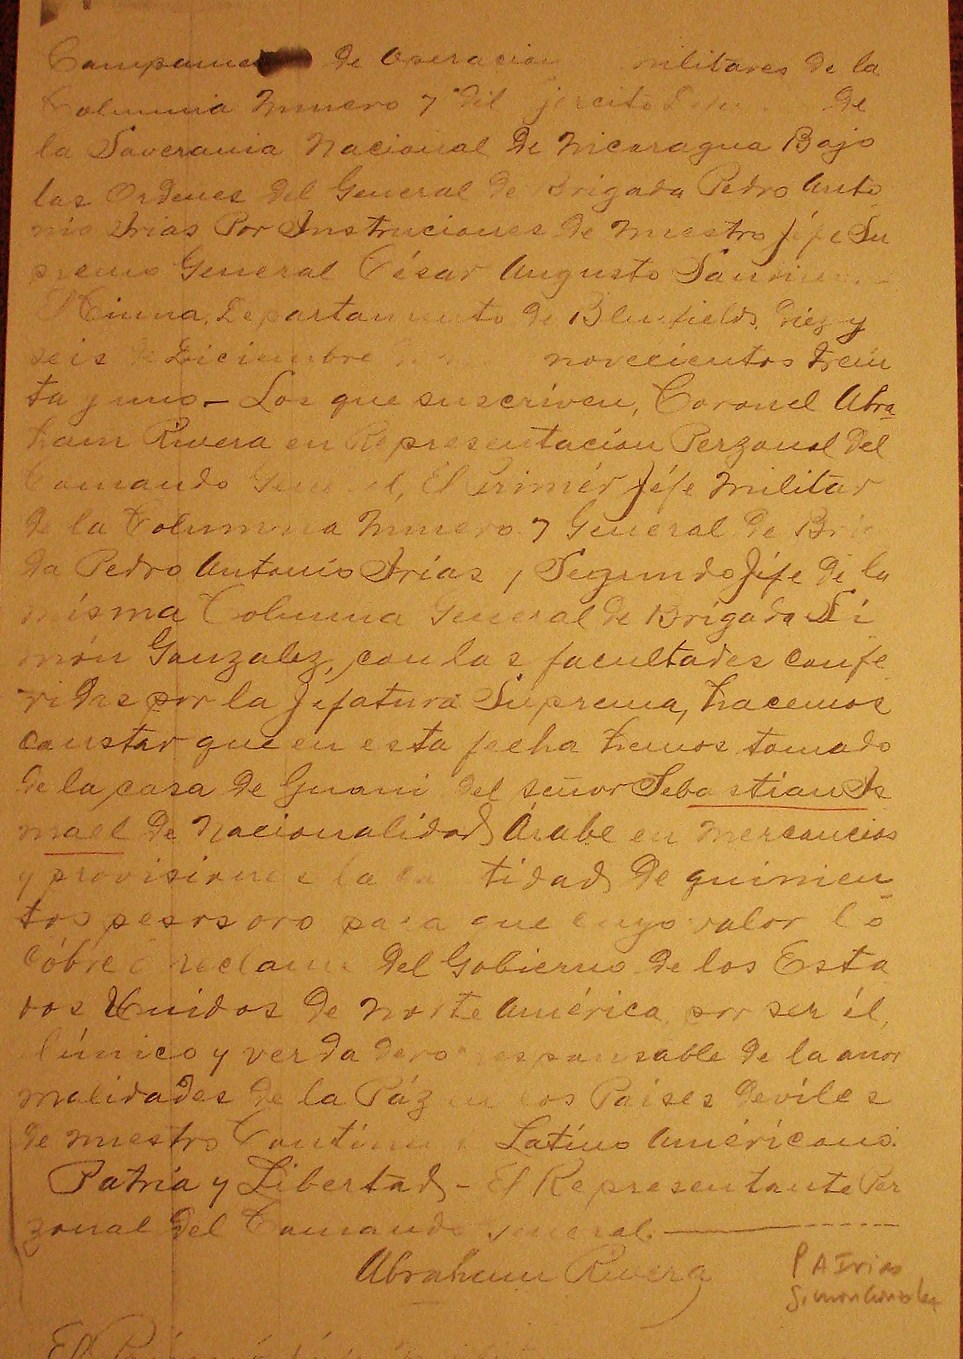 Campame de Operacion militares de la
Columna Numero 7 del jercito De de
la Soverania Nacional de Nicaragua Bajo
las Ordenes del General de Brigada Pedro Anto
nio Irias Por Instruciones de Nuestro Jéfe Su
premo General César Augusto Sandin
Departamento de Blufields, diez y
seis de Diciembre novecientos trein
ta y uno— Los que suscriven, Coronel Abra
ham Rivera en Representacion Perzonal del
Comando General, El Primér Jéfe Militar
de la Columna Numero 7 General de Bri
da Pedro Antonio Irias, Segundo Jéfe de la
mísma Columna General de Brigada Si
món Gonzalez, con las facultades confe
ridas por la Jéfatura Suprema, hacemos
constar que en esta fecha hemos tomado
de la casa de Guani del señor Sebastian Is
mael de Nacionalidad Árabe en mercancias
y provisiones la cantidad de quinien
tos pesos oro para que cuyo valor lo
cóbre ó reclame del Gobierno de los Esta
dos Unidos de Norte América por ser él,
único y verdadero responsable de la anor
malidades de la Páz en los Paises deviles
de nuestro Contine Latino Américano.
Patria y Libertad— El Representante Per
zonal del Comando General.
Abraham Rivera
P A Irias
Simon Gonzalez